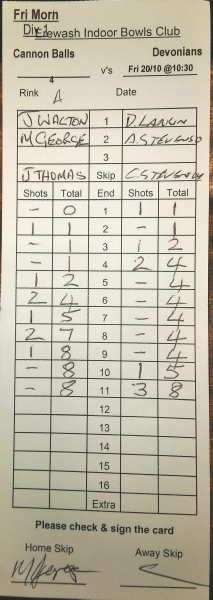 Fri Morn
Div 1 Erewash Indoor Bowls Club
Cannon Balls Devonians
4 v's Fri 20/10 @10:30
Rink A Date
J WALTON 1 D. LARKIN
M GEORGE 2
3
J THOMAS Skip
Shots Total End Shots Total
- 0 1 1 1
1 1 2 - 1
- 1 3 1 2
- 1 4 2 4
1 2 5 - 4
2 4 6 - 4
1 5 7 - 4
2 7 8 - 4
1 8 9 - 4
- 8 10 1 5
- 8 11 3 8
12
13
14
15
16
Extra
Please check & sign the card
Home Skip Away Skip